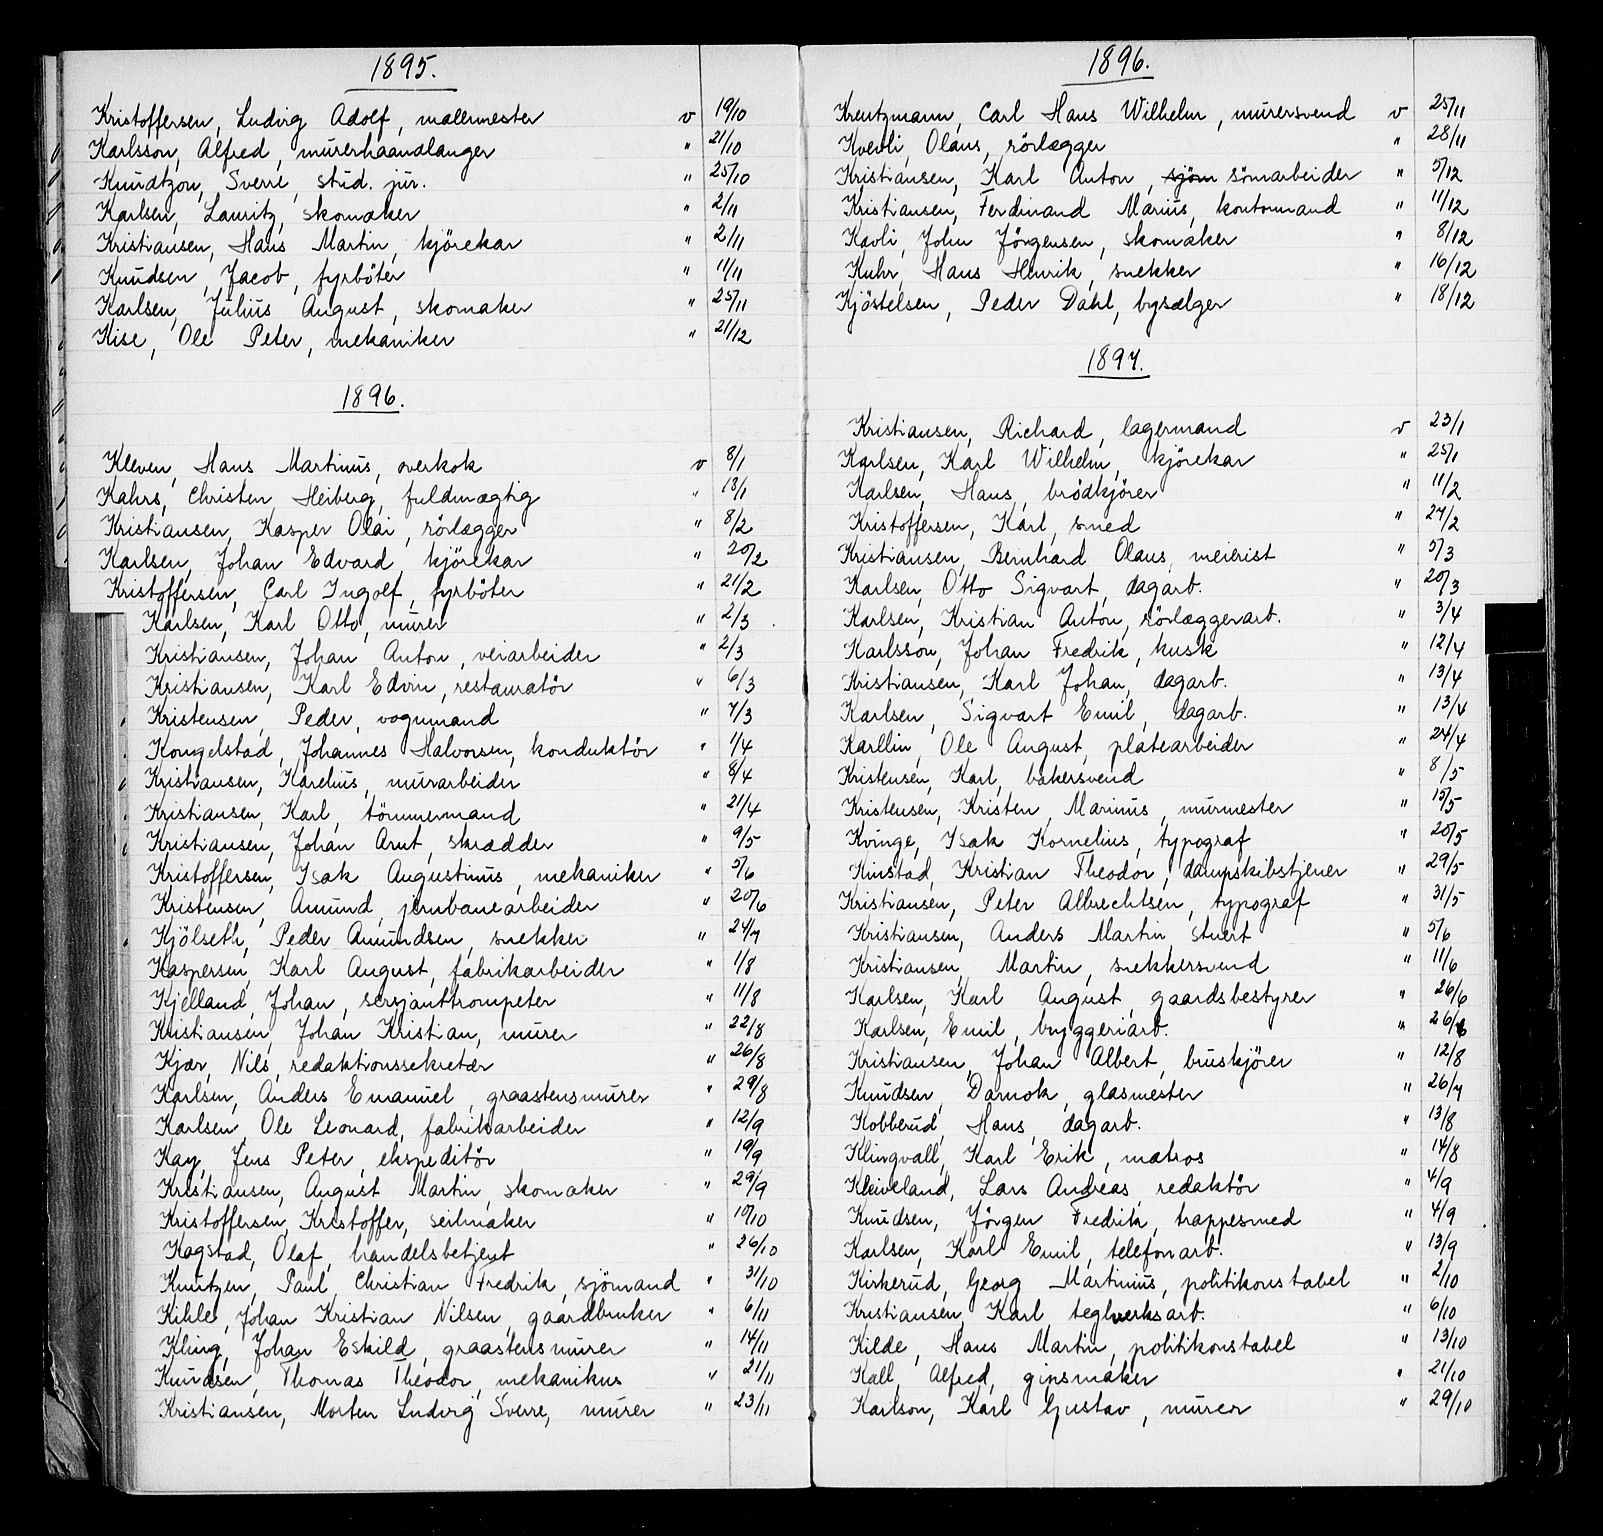 1895.
Kristoffersen, Ludvig Adolf, malermester v 19/10
Karlsson, Alfred, murerhaandlanger " 21/10
Knudtzon, Sverre, stud. jur. " 25/10
Karlsen, Lauritz, skomaker " 2/11
Kristiansen, Hans Martin, kjörekar " 2/11
Knudsen, Jacob, fyrböter " 11/11
Karlsen, Julius August, skomaker " 25/11
Kise, Ole Peter, mekaniker " 21/12
1896.
Kleven, Hans Martinus, overkok v 8/1
Kahrs, Christen Heiberg, fuldmægtig " 18/1
Kristiansen, Kasper Olai, rörlægger " 8/2
Karlsen, Johan Edvard, kjörekar " 20/2
Kristoffersen, Carl Ingolf, fyrböter " 21/2
Karlsen, Karl Otto, murer " 2/3
Kristiansen, Johan Anton, veiarbeider " 2/3
Kristiansen, Karl Edvin, restauratör " 6/3
Kristensen, Peder, vognmand " 7/3
Kongelstad, Johannes Halvorsen, konduktör " 1/4
Kristiansen, Karelius, murarbeider " 8/4
Kristiansen, Karl, tömmermand " 21/4
Kristiansen, Johan Arnt, skrædder " 9/5
Kristoffersen, Isak Augustinus, mekaniker " 5/6
Kristensen, Amund, jernbanearbeider " 20/6
Kjölseth, Peder Amundsen, snekker " 24/7
Kaspersen, Karl August, fabrikarbeider " 1/8
Kjelland, Johan, sersjanttrompeter " 11/8
Kristiansen, Johan Kristian, murer " 22/8
Kjær, Nils, redaktionssekretær " 26/8
Karlsen, Anders Emanuel, graastensmurer " 29/8
Karlsen, Ole Leonard, fabrikarbeider " 12/9
Kay, Jens Peter, ekspeditör " 19/9
Kristiansen, August Martin, skomaker " 29/9
Kristoffersen, Kristoffer, seilmaker " 10/10
Kogstad, Olaf, handelsbetjent " 26/10
Knutzen, Paul Christian Fredrik, sjömand " 31/10
Kihle, Johan Kristian Nilsen, gaardbruker " 6/11
Kling, Johan Eskild, graastensmurer " 14/11
Knudsen, Thomas Theodor, mekanikus " 21/11
Kristiansen, Morten Ludvig Sverre, murer " 23/11
1896.
Kreutzmann, Carl Hans Wilhelm, murersvend v 25/11
Kvevli, Olaus, rörlægger " 28/11
Kristiansen, Karl Anton, sjöm sömarbeider " 5/12
Kristiansen, Ferdinand Marius, kontormand " 11/12
Kavli, John Jörgensen, skomaker " 8/12
Kuhr, Hans Henrik, snekker " 16/12
Kjöstelsen, Peder Dahl, bysælger " 18/12
1897.
Kristiansen, Richard, lagermand v 23/1
Karlsen, Karl Wilhelm, kjörekar " 25/1
Karlsen, Hans, brödkjörer " 11/2
Kristoffersen, Karl, smed " 27/2
Kristiansen, Bernhard Olaus, meierist " 5/3
Karlsen, Otto Sigvart, dagarb. " 20/3
Karlsen, Kristian Anton, rörlæggerarb. " 3/4
Karlsson, Johan Fredrik, kusk " 12/4
Kristiansen, Karl Johan, dagarb. " 13/4
Karlsen, Sigvart Emil, dagarb. " 13/4
Karllin, Ole August, platearbeider " 24/4
Kristensen, Karl, bakersvend " 8/5
Kristensen, Kristen Marinus, murmester " 15/5
Kvinge, Isak Kornelius, typograf " 20/5
Kinstad, Kristian Theodor, dampskibstjener " 29/5
Kristiansen, Peter Albrechtsen, typograf " 31/5
Kristiansen, Anders Martin, stuert " 5/6
Kristiansen, Martin, snekkersvend " 11/6
Karlsen, Karl August, gaardsbestyrer " 26/6
Karlsen, Emil, bryggeriarb. " 26/6
Kristiansen, Johan Albert, bruskjörer " 12/8
Knudsen, Darnok, glasmester " 26/7
Kobberud, Hans, dagarb. " 13/8
Klingvall, Karl Erik, matros " 14/8
Kleiveland, Lars Andreas, redaktör " 4/9
Knudsen, Jörgen Fredrik, trappesmed " 4/9
Karlsen, Karl Emil, telefonarb. " 13/9
Kirkerud, Georg Martinius, politikonstabel " 2/10
Kristiansen, Karl, teglverksarb. " 6/10
Kilde, Hans Martin, politikonstabel " 13/10
Kall, Alfred, gipsmaker " 21/10
Karlson, Karl Gustav, murer " 29/10